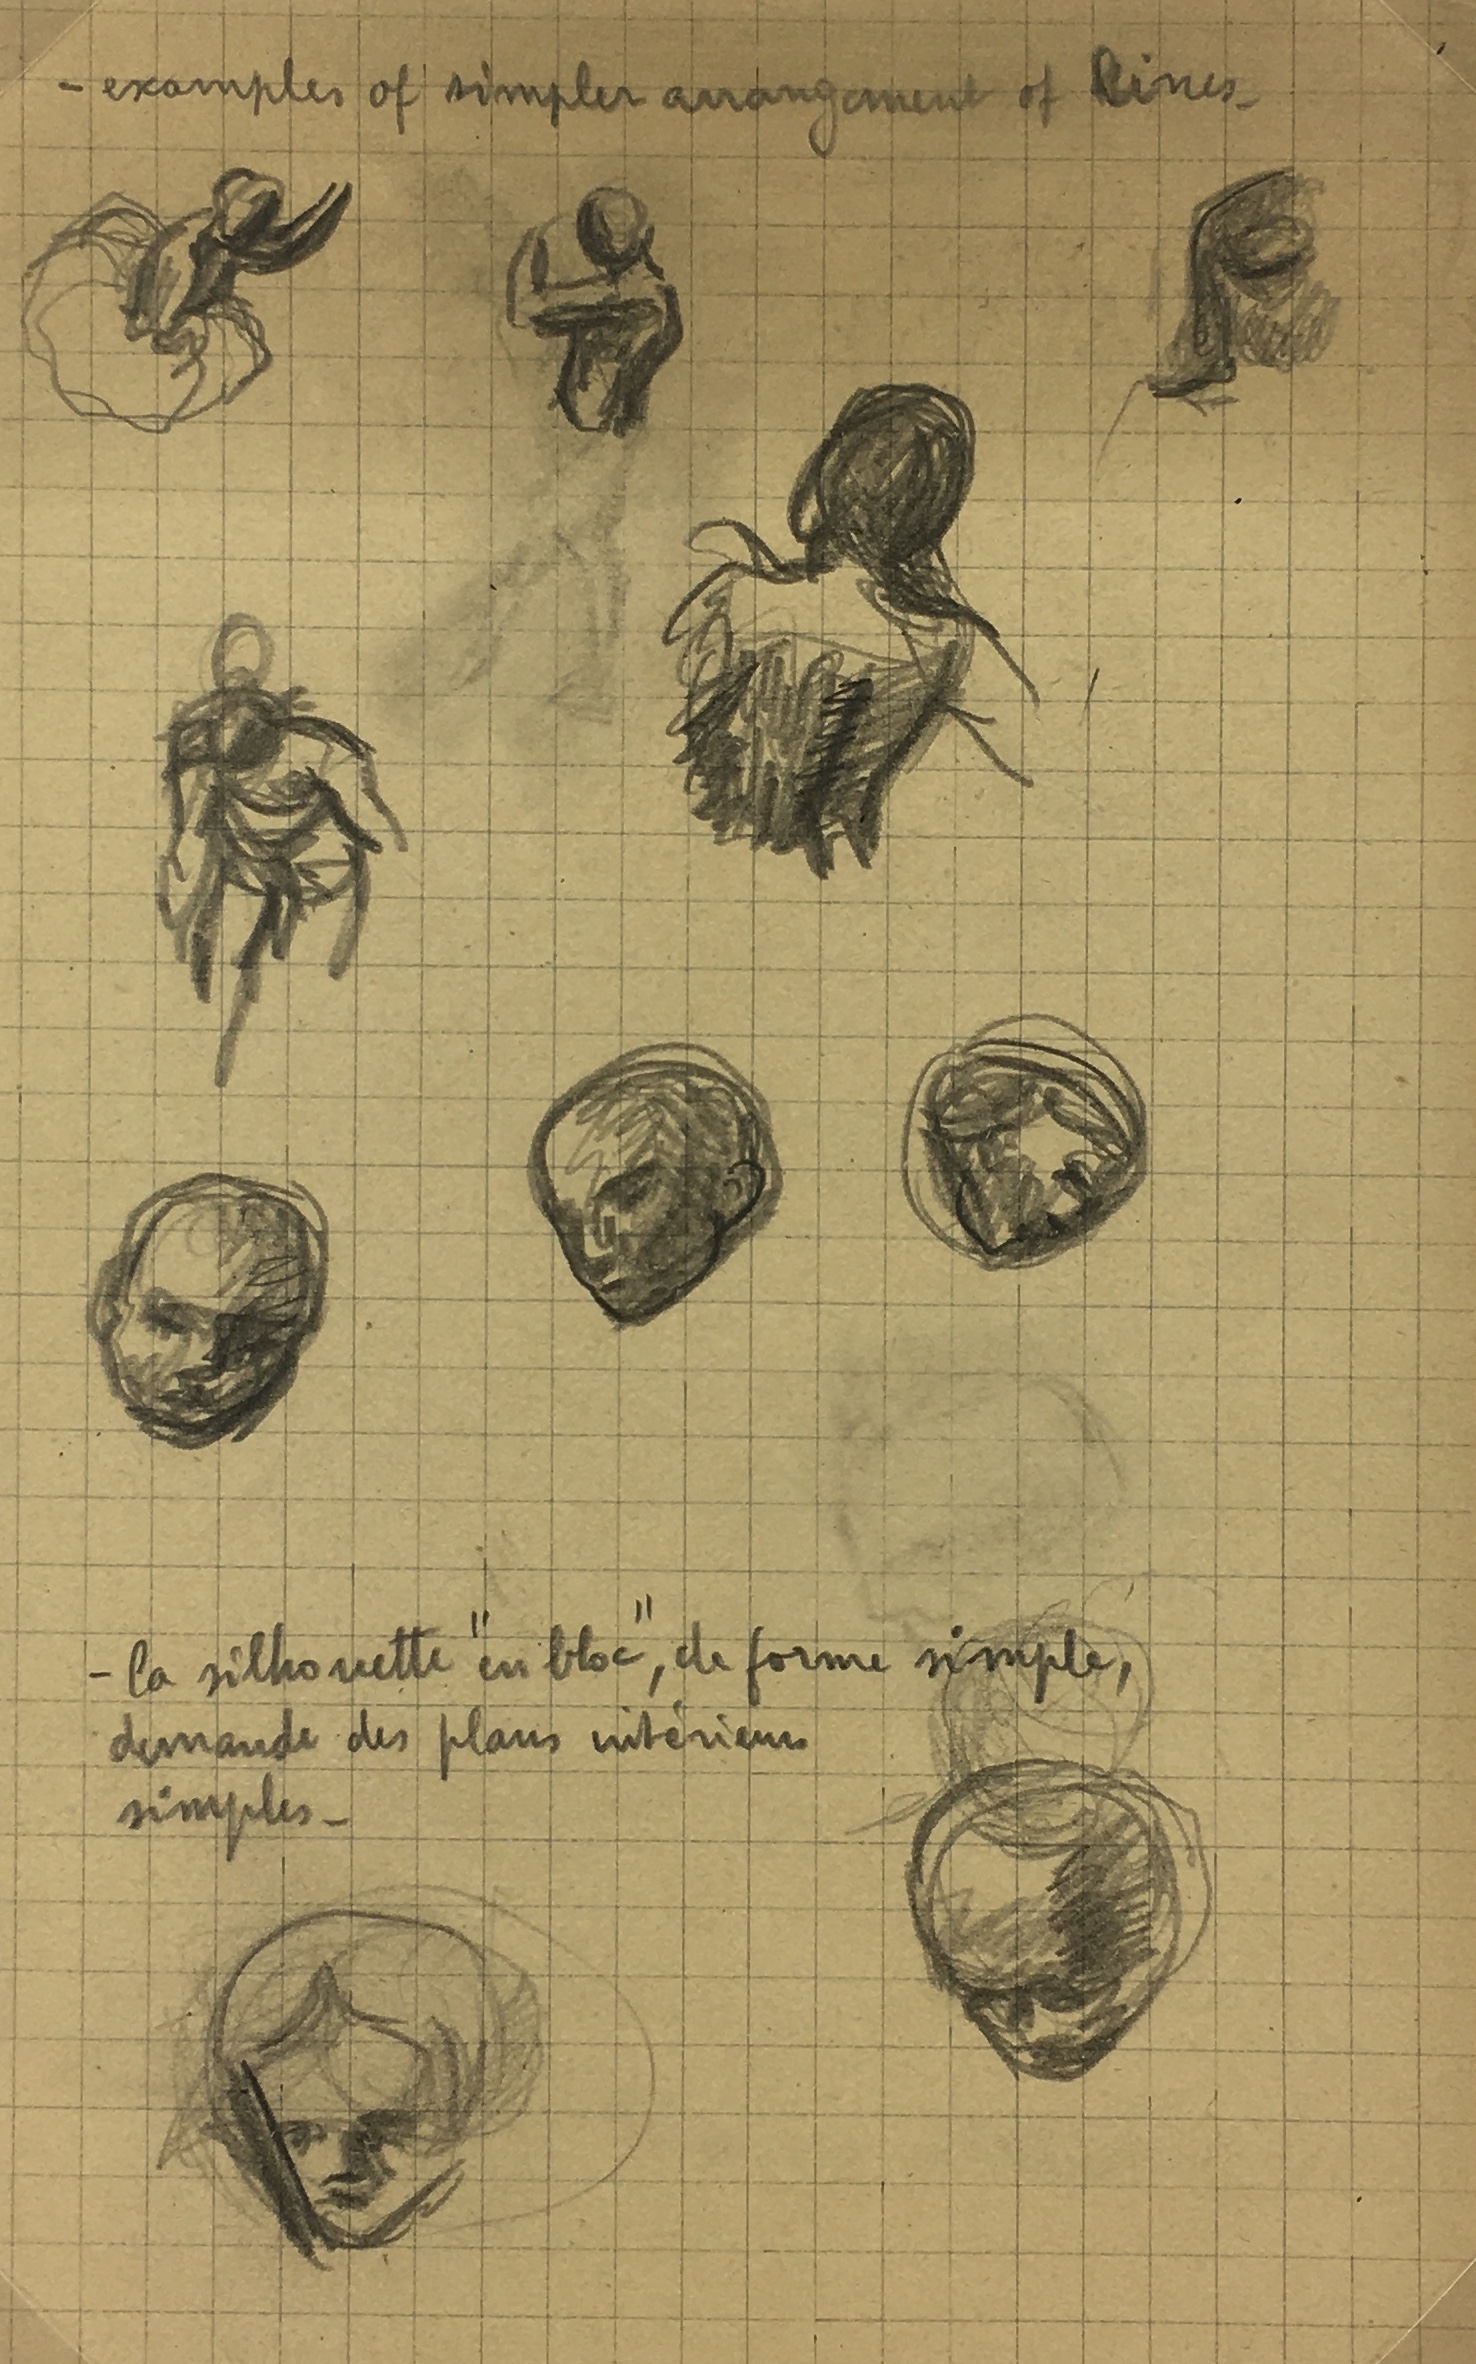 - examples of simpler arrangement of lines -
- la silhouette "en bloc", de forme simple,
demande des plans intérieurs
simples -